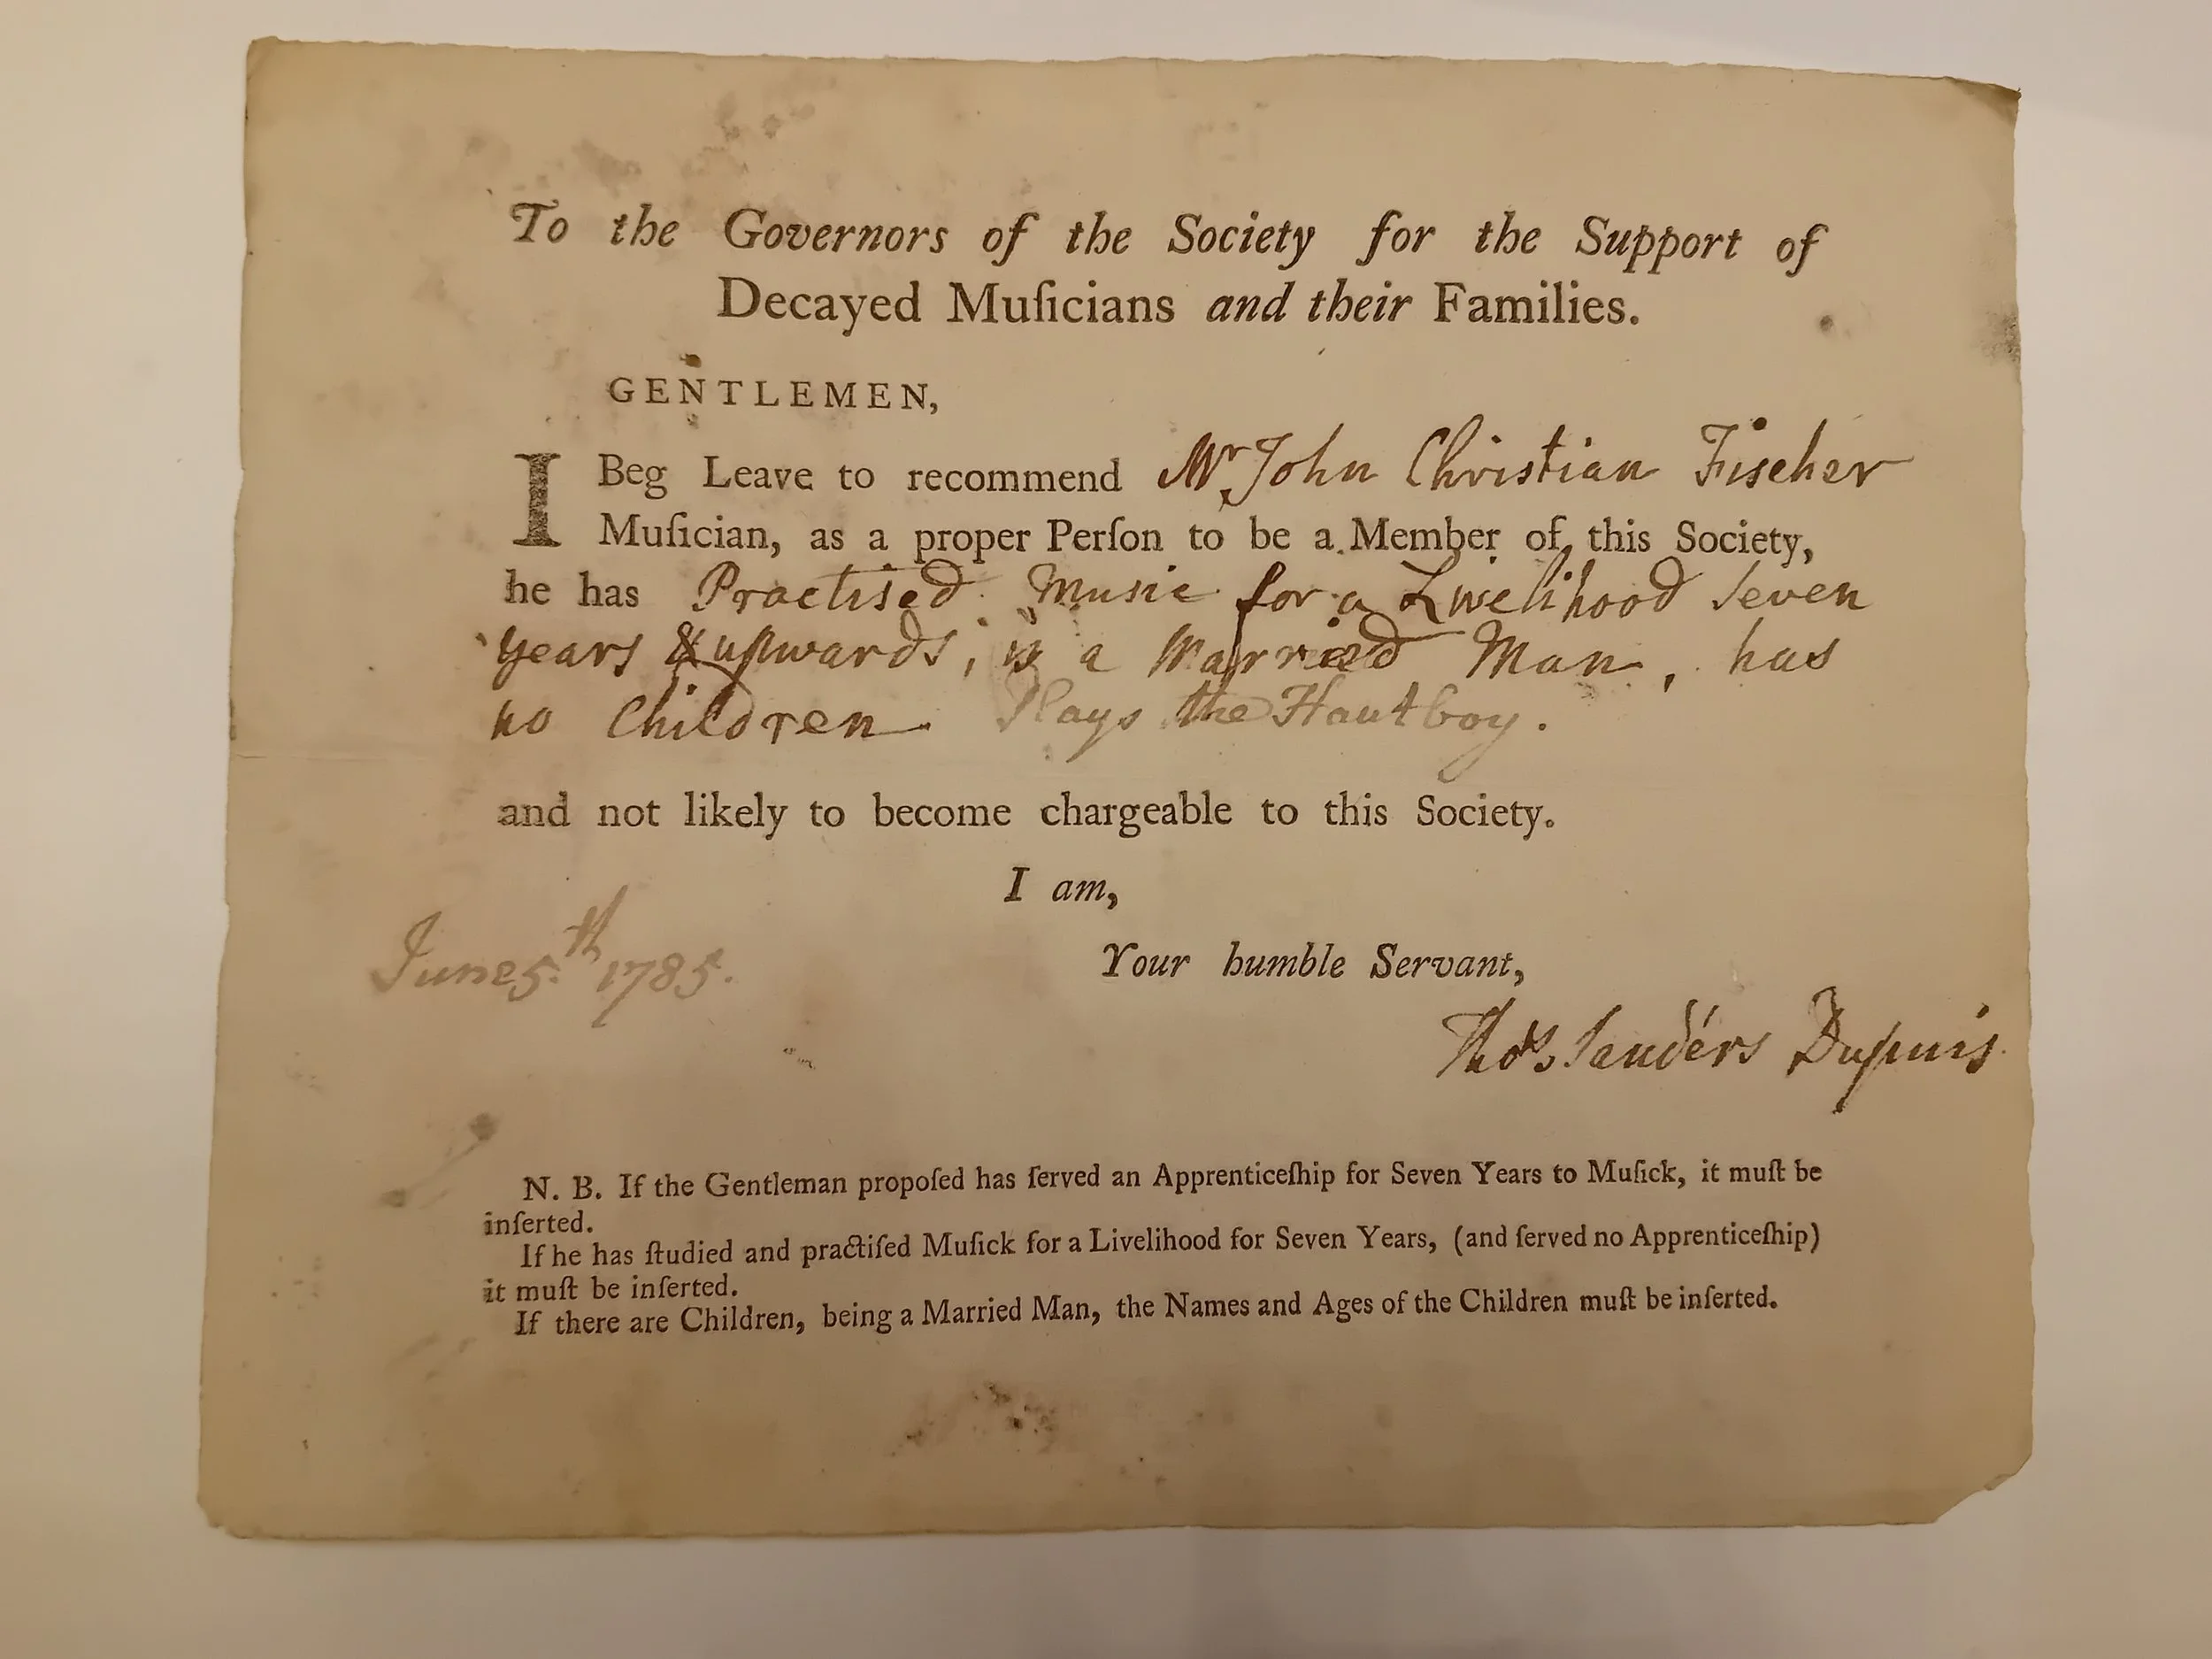 To the Governors of the Society for the Support of
Decayed Muſicians and their Families.
GENTLEMEN,
I Beg Leave to recommend Mr. John Christian Fischer
Muſician, as a proper Perſon to be a Member of this Society,
he has Practised Music for a Livelihood Seven
years & upwards, is a Married Man, has
no Children. Plays the Hautboy.
and not likely to become chargeable to this Society.
I am,
Your humble Servant,
June 5.th 1785.
Thos. Sanders Dupuis.
N. B. If the Gentleman propoſed has ſerved an Apprenticeſhip for Seven Years to Muſick, it muſt be
inſerted.
If he has ſtudied and practiſed Muſick for a Livelihood for Seven Years, (and ſerved no Apprenticeſhip)
it muſt be inſerted.
If there are Children, being a Married Man, the Names and Ages of the Children muſt be inſerted.